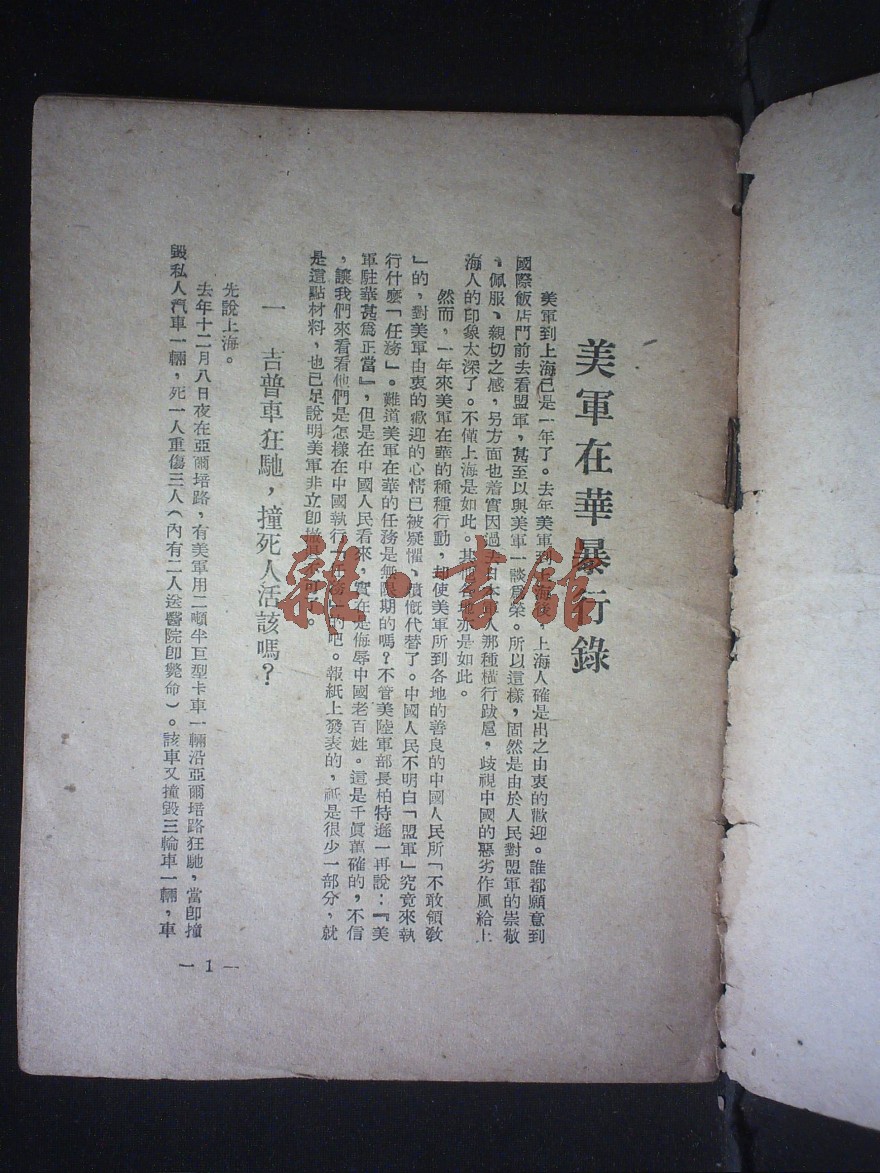 美軍在華暴行錄
美軍到上海已是一年了。去年美軍到上海後,上海人確是出之由衷的歡迎。誰都願意到
國際飯店門前去看盟軍,甚至以與美軍一談爲榮。所以這樣,固然是由於人民對盟軍的崇敬
、佩服、親切之感,另方面也着實因過去日本軍人那種橫行跋扈,歧視中國的惡劣作風給上
海人的印象太深了。不僅上海是如此。其他各地亦是如此。
然而,一年來美軍在華的種種行動,却使美軍所到各地的善良的中國人民所「不敢領敎
」的,對美軍由衷的歡迎的心情已被疑懼、憤慨代替了。中國人民不明白「盟軍」究竟來執
行什麽「任務」。難道美軍在華的任務是無限期的嗎?不管美陸軍部長柏特遜一再說:『美
軍駐華甚爲正當』,但是在中國人民看來,實在是侮辱中國老百姓。這是千眞萬確的,不信
,讓我們來看看他們是怎樣在中國執行「任務」的吧。報紙上發表的,祇是很少一部分,就
是這點材料,也已足說明美軍非立卽撤退不可了。
一 吉普車狂馳,撞死人活該嗎?
先說上海。
去年十二月八日夜在亞爾培路,有美軍用二噸半巨型卡車一輛沿亞爾培路狂馳,當卽撞
毀私人汽車一輛,死一人重傷三人(內有二人送醫院卽斃命)。該車又撞毀三輪車一輛,車
— 1 —
雜·書館